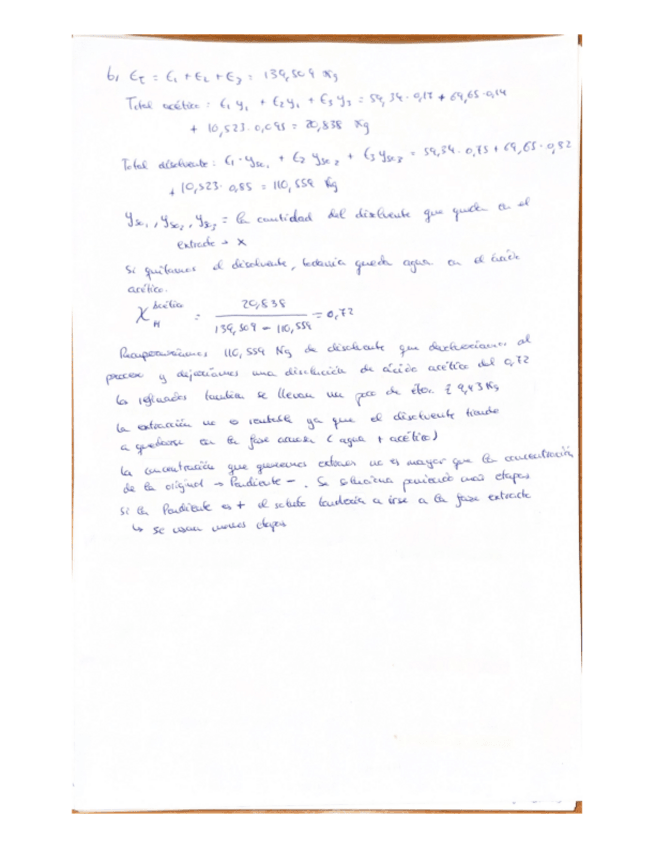 b) E_T = E₁ + E₂ + E₃ = 139,509 Kg
Total acético: E₁ y₁ + E₂ y₂ + E₃ y₃ = 59,34 · 0,17 + 69,65 · 0,14
+ 10,523 · 0,095 = 20,838 Kg
Total disolvente: E₁ · y_sc₁ + E₂ y_sc₂ + E₃ y_sc₃ = 59,34 · 0,75 + 69,65 · 0,82
+ 10,523 · 0,85 = 110,559 Kg
y_sc₁, y_sc₂, y_sc₃ = la cantidad del disolvente que queda en el
extracto → x
Si quitamos el disolvente, todavía queda agua en el ácido
acético.
X_M^acético = 20,838 / 139,509 − 110,559 = 0,72
Recuperaríamos 110,559 Kg de disolvente que devolveríamos al
proceso y dejaríamos una disolución de ácido acético del 0,72
Los refinados también se llevan un poco de éter. 9,43 Kg
La extracción no es rentable ya que el disolvente tiende
a quedarse en la fase acuosa (agua + acético)
La concentración que queremos extraer no es mayor que la concentración
de la original → Pendiente −. Se soluciona poniendo más etapas
Si la Pendiente es + el soluto tendería a irse a la fase extracto
↳ Se usan menos etapas